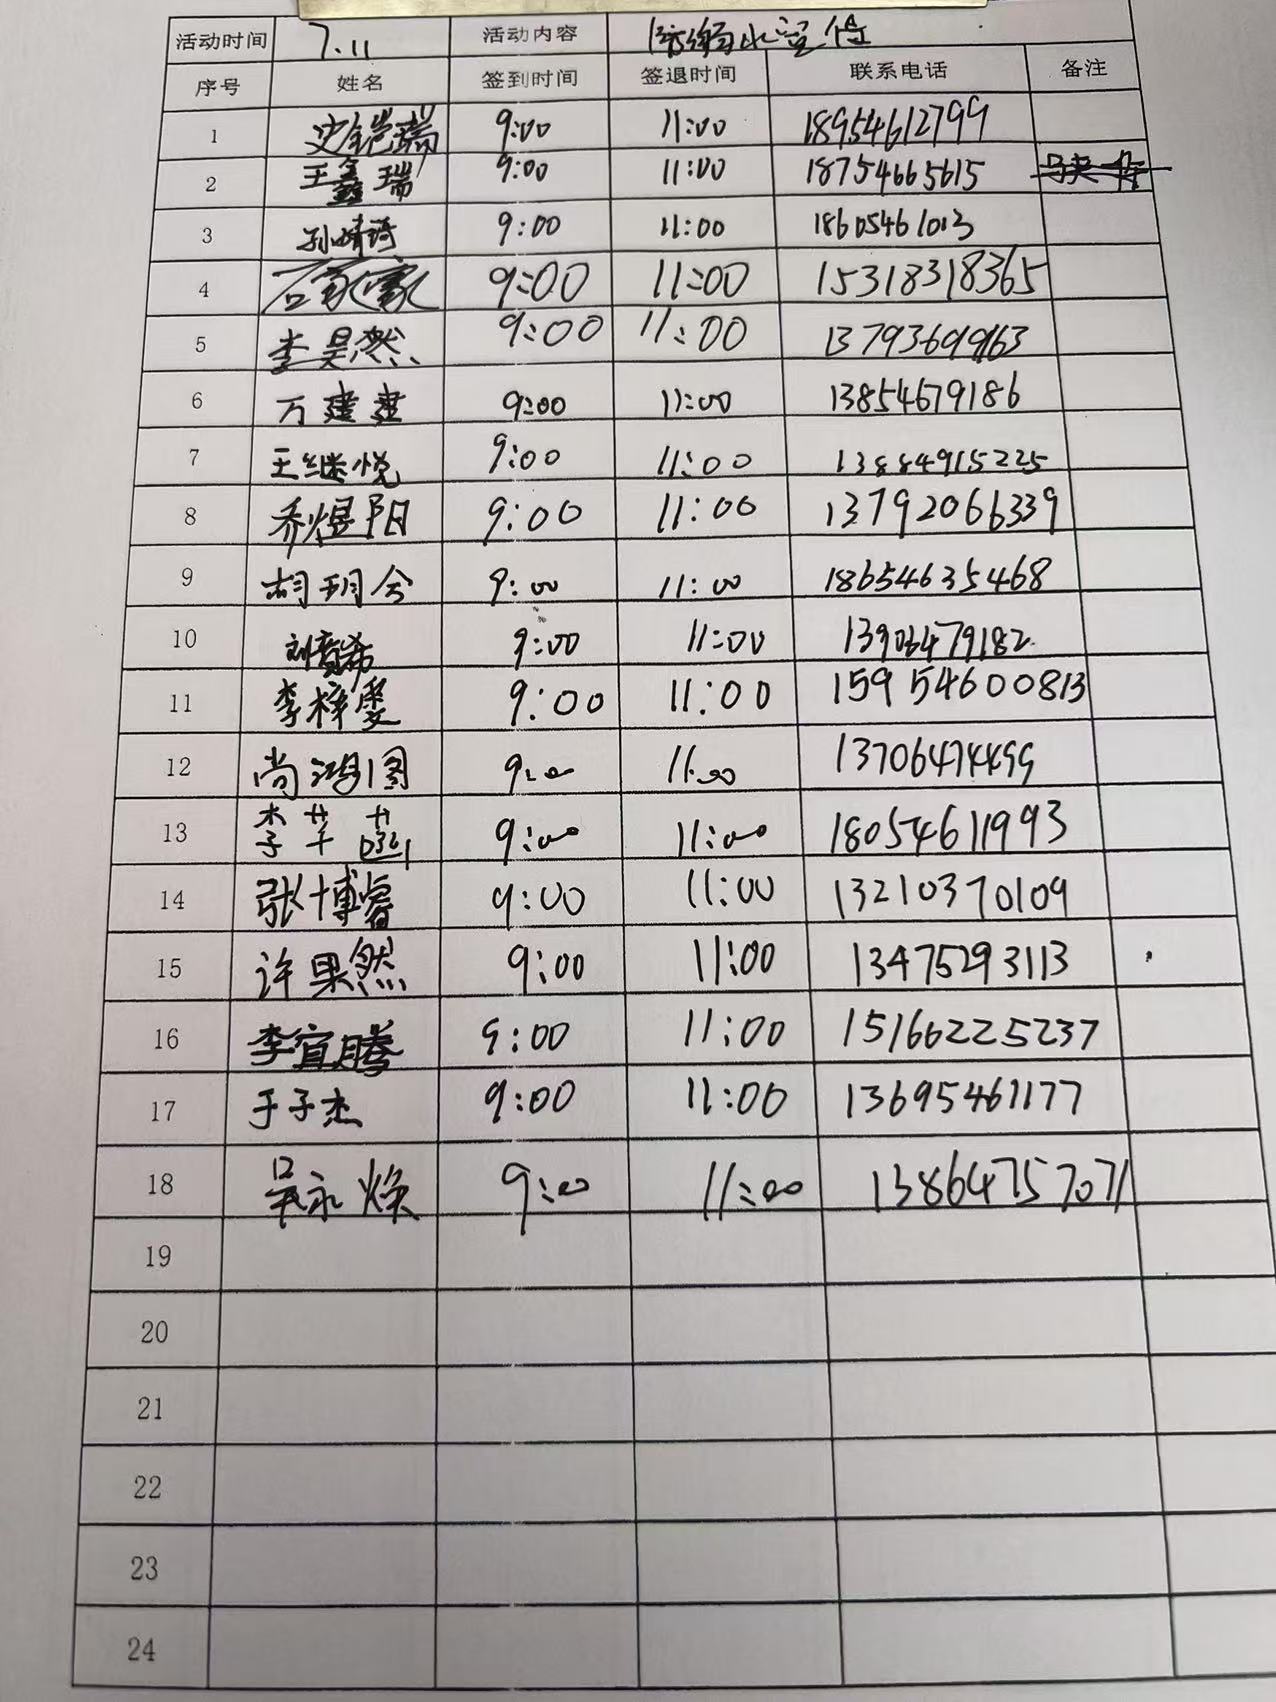 活动时间 7.11 活动内容 防溺水宣传
序号 姓名 签到时间 签退时间 联系电话 备注
1 史铠瑞 9:00 11:00 18954612799
2 王鑫瑞 9:00 11:00 18754665615
3 孙婧琦 9:00 11:00 18605461013
4 石家豪 9:00 11:00 15318318365
5 李昊然 9:00 11:00 13793699163
6 万建建 9:00 11:00 13854679186
7 王继悦 9:00 11:00 13884915225
8 乔煜阳 9:00 11:00 13792066339
9 胡玥含 9:00 11:00 18654635468
10 9:00 11:00
11 李梓雯 9:00 11:00 15954600813
12 尚鸿图 9:00 11:00 13706474499
13 李芊菡 9:00 11:00 18054611993
14 张博睿 9:00 11:00 13210370109
15 许果然 9:00 11:00 13475293113
16 李宜腾 9:00 11:00 15166225237
17 于子杰 9:00 11:00 13695461177
18 吴永焕 9:00 11:00 13864757071
19
20
21
22
23
24